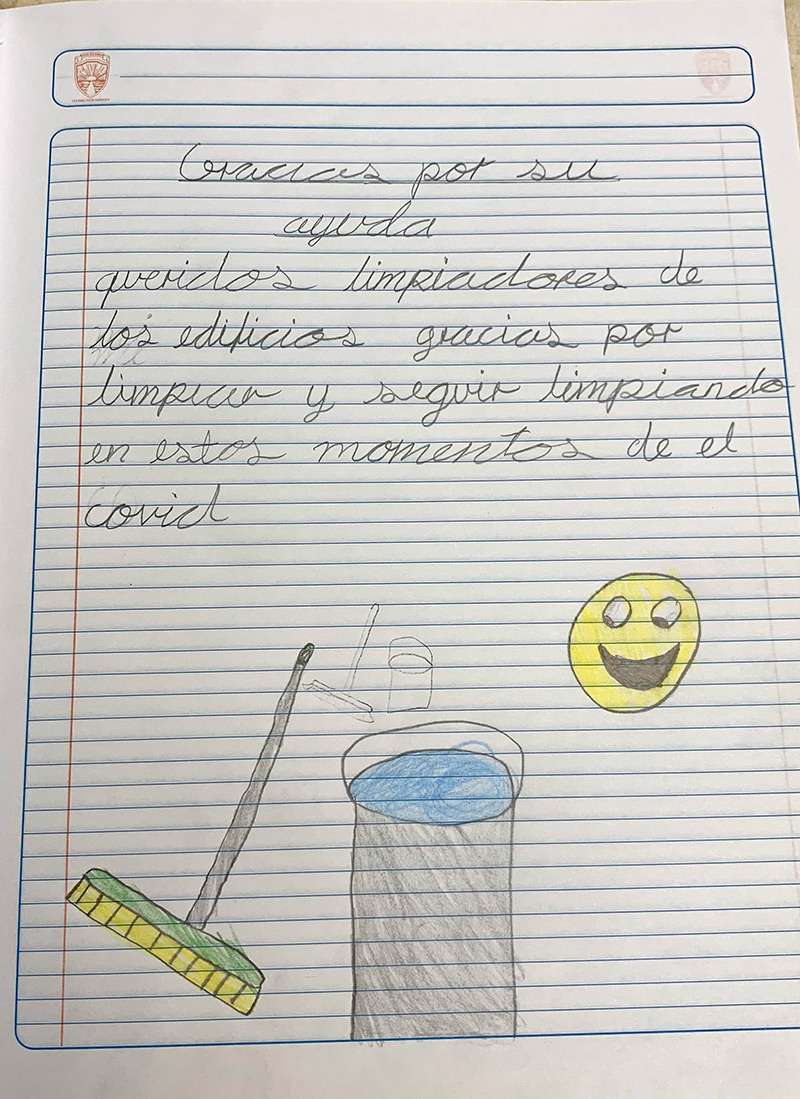 Gracias por su
ayuda
queridos limpiadores de
los edificios gracias por
limpiar y seguir limpiando
en estos momentos de el
covid